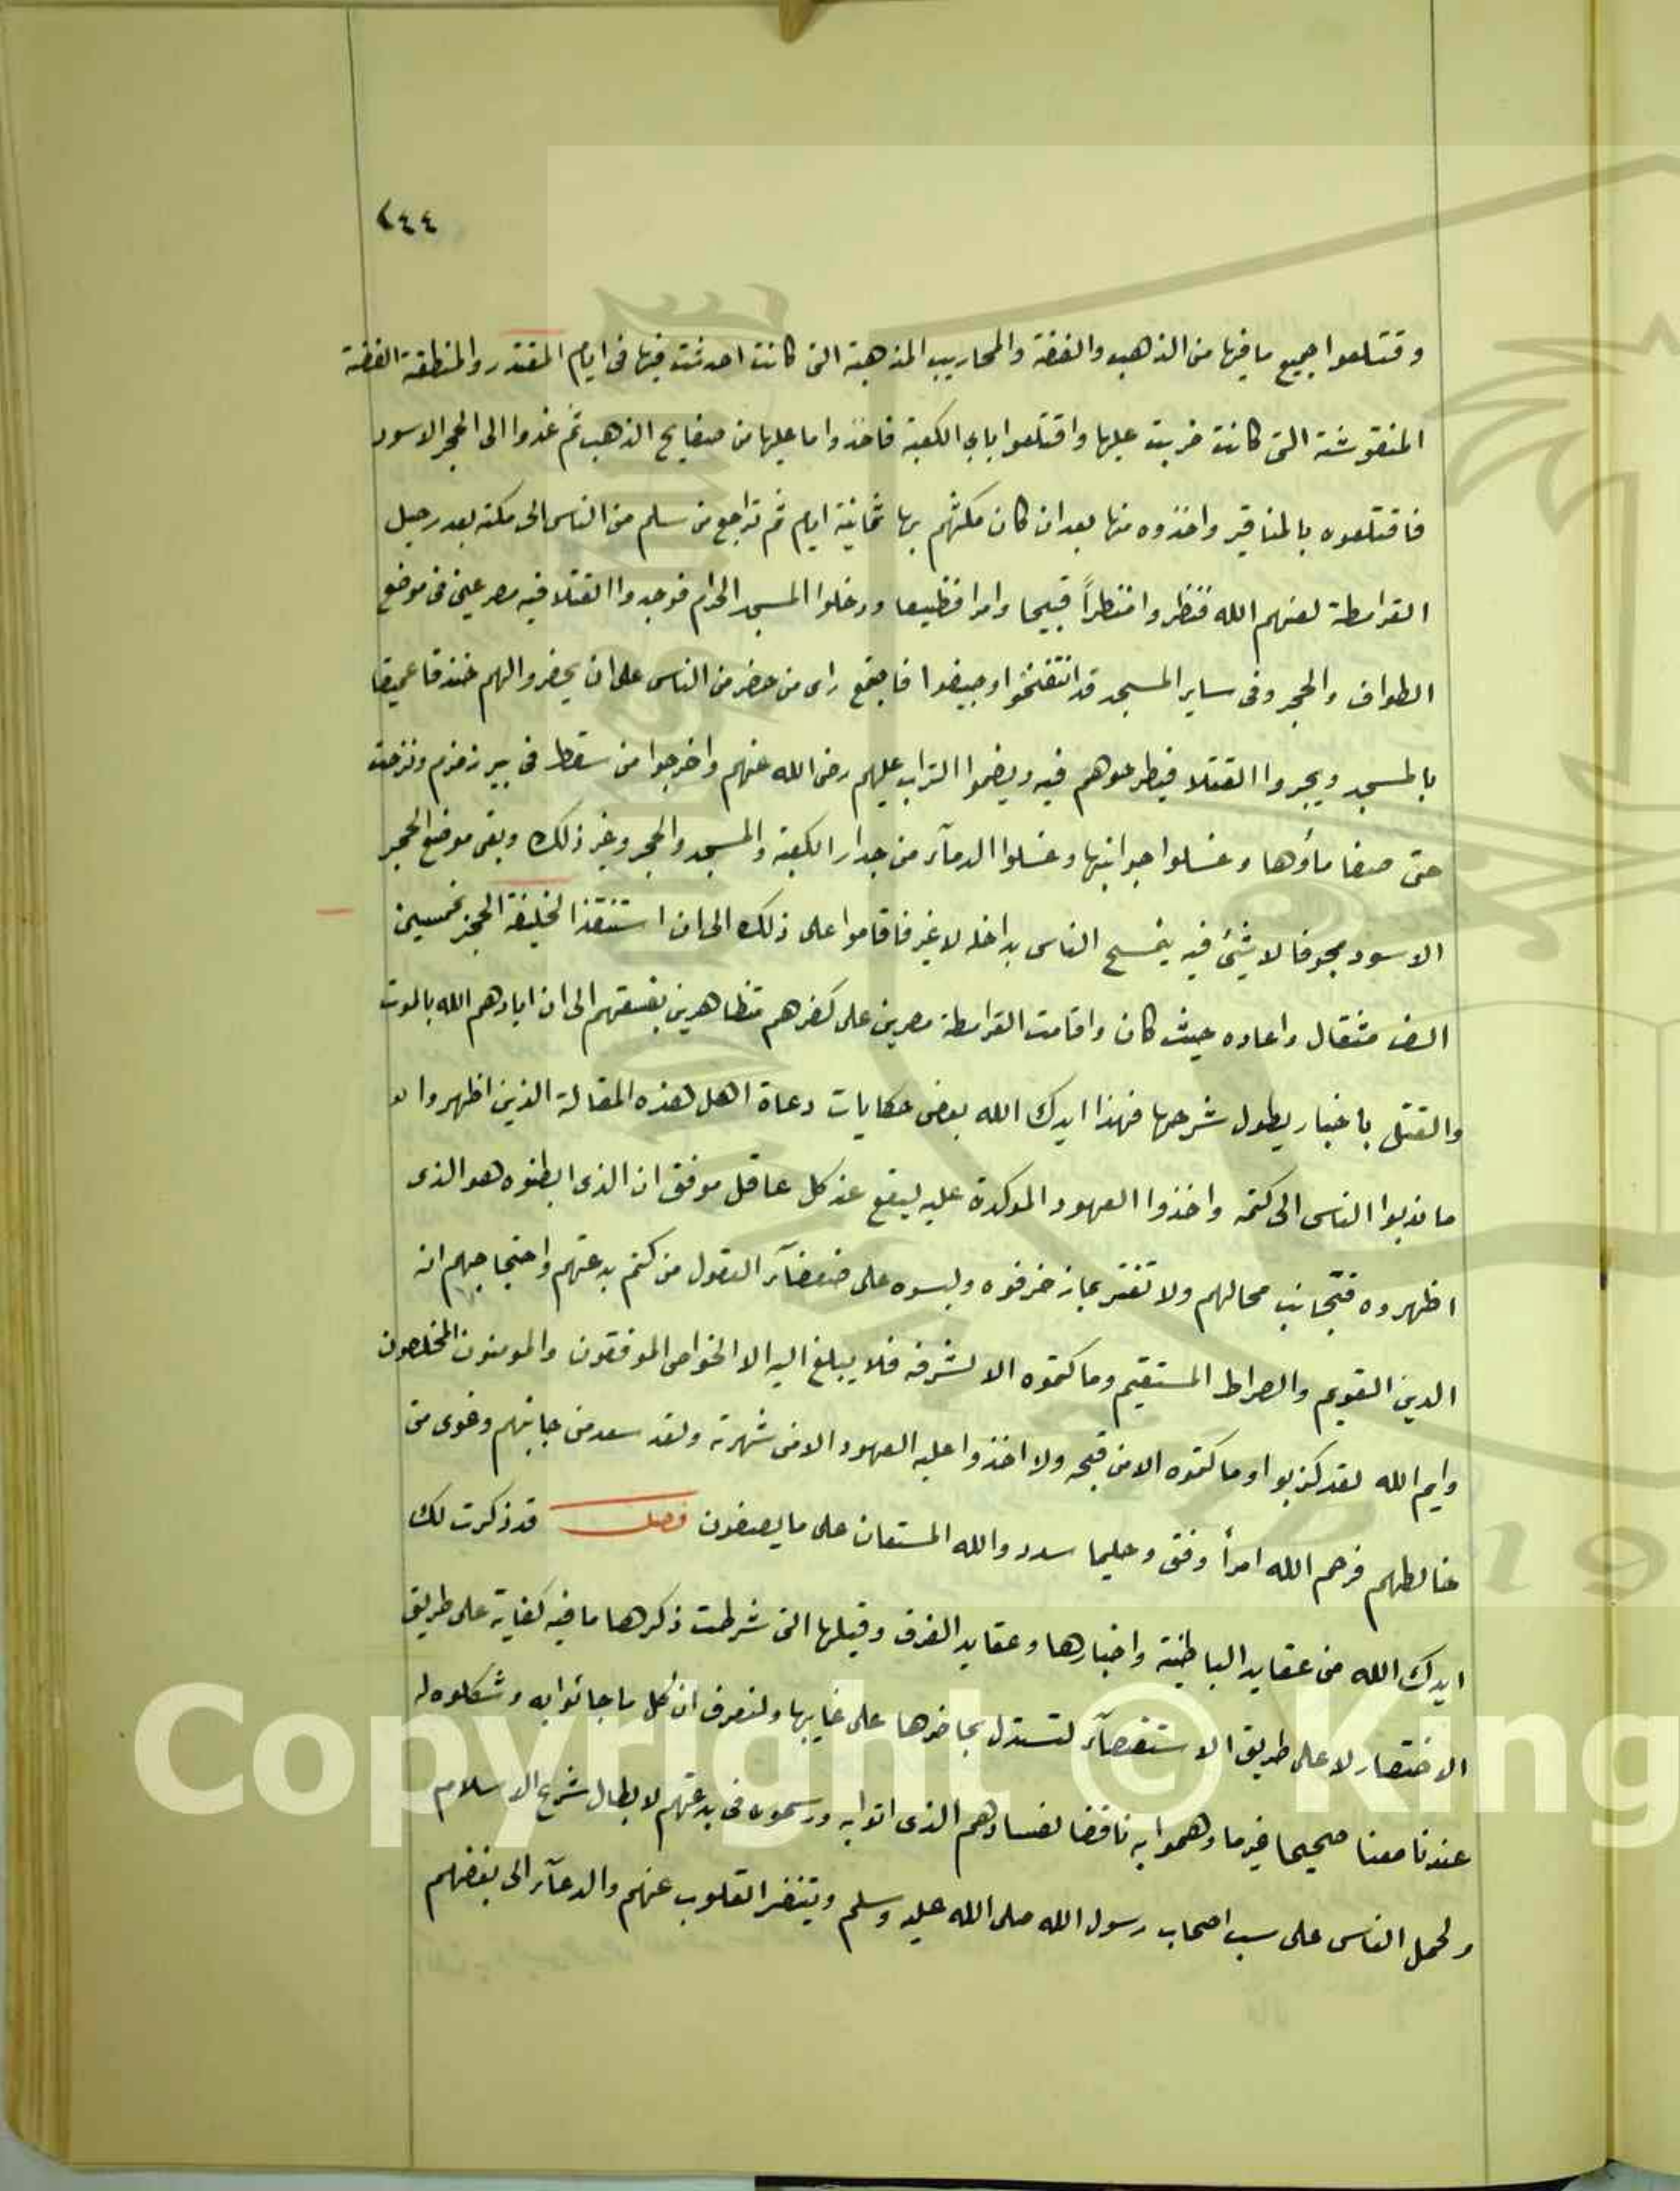 ٢٤٤
وقتلعوا جميع ما فيها من الذهب والفضة والمحاريب المذهبة التى كانت احدثت فيها فى ايام المقتدر والمنطقة الفضة
المنقوشة التى كانت ضربت عليها واقتلعوا باب الكعبة فاخذوا ما عليها من صفايح الذهب ثم غدوا الى الحجر الاسود
فاقتلعوه بالمناقير واخذوه منها بعد ان كان مكثهم بها ثمانية ايام ثم تراجع من سلم من الناس الى مكة بعد رحيل
القرامطة لعنهم الله فنظروا منظراً قبيحا وامرا فظيعا ودخلوا المسجد الحرام فوجدوا القتلا فيه مصرعين فى موضع
الطواف والحجر وفى ساير المسجد قد انتفخوا وجيفوا فاجتمع راى من حضر من الناس على ان يحفروا لهم خندقا عميقا
بالمسجد ويجروا القتلا فيطرحوهم فيه ويضموا التراب عليهم رضى الله عنهم واخرجوا من سقط فى بير زمزم ونزحت
حتى صفا ماؤها وغسلوا جوانبها وغسلوا الدمآء من جدار الكعبة والمسجد والحجر وغير ذلك وبقى موضع الحجر
الاسود مجوفا لا شيئ فيه يتمسح الناس بداخله لا غير فاقاموا على ذلك الى ان استنقذ الخليفة الحجر بخمسين
الف مثقال واعاده حيث كان واقامت القرامطة مصرين على كفرهم متظاهرين بفسقهم الى ان ابادهم الله بالموت
والقتل باخبار يطول شرحها فهذا ايدك الله بعض حكايات دعاة اهل هذه المقالة الذين اظهروا لا
ما ندبوا الناس الى كتمه واخذوا العهود الموكدة عليه ليقع عند كل عاقل موفق ان الذى ابطنوه هو الذى
اظهروه فتجانب محالهم ولا تغتر بما زخرفوه ولبسوه على ضعفآء العقول من كتم بدعتهم واحتجاجهم انه
الدين القويم والصراط المستقيم وما كتموه الا لشرفه فلا يبلغ اليه الا الخواص الموفقون والمومنون المخلصون
وايم الله لقد كذبوا وما كتموه الا من قبحه ولا اخذوا عليه العهود الا من شهرته ولقد سعد من جانبهم وغوى من
خالطهم فرحم الله امرأ وفق وحليما سدد والله المستعان على ما يصفون فصل قد ذكرت لك
ايدك الله من عقايد الباطنية واخبارها وعقايد الفرق وقيلها التى شرطت ذكرها ما فيه كفاية على طريق
الاختصار لا على طريق الاستقصآء لتستدل بحاضرها على غايبها ولتعرف ان كل ما جائوا به وشكلوه له
عندنا معنا صحيحا غير ما وهموا به ناقضا لفسادهم الذى اتوا به ورسموه فى بدعتهم لابطال شرع الاسلام
ولحمل الناس على سب اصحاب رسول الله صلى الله عليه وسلم ويتنفر القلوب عنهم والدعآء الى بغضهم
Copyright © King